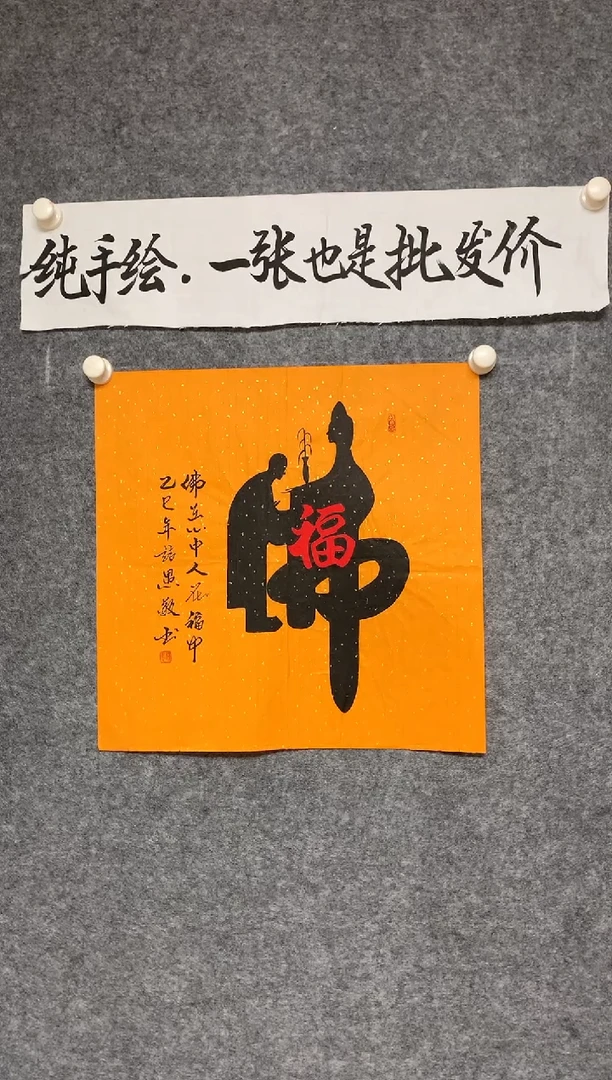 纯手绘.一张也是批发价
福
佛在心中人在福中
乙巳年 愚敬书